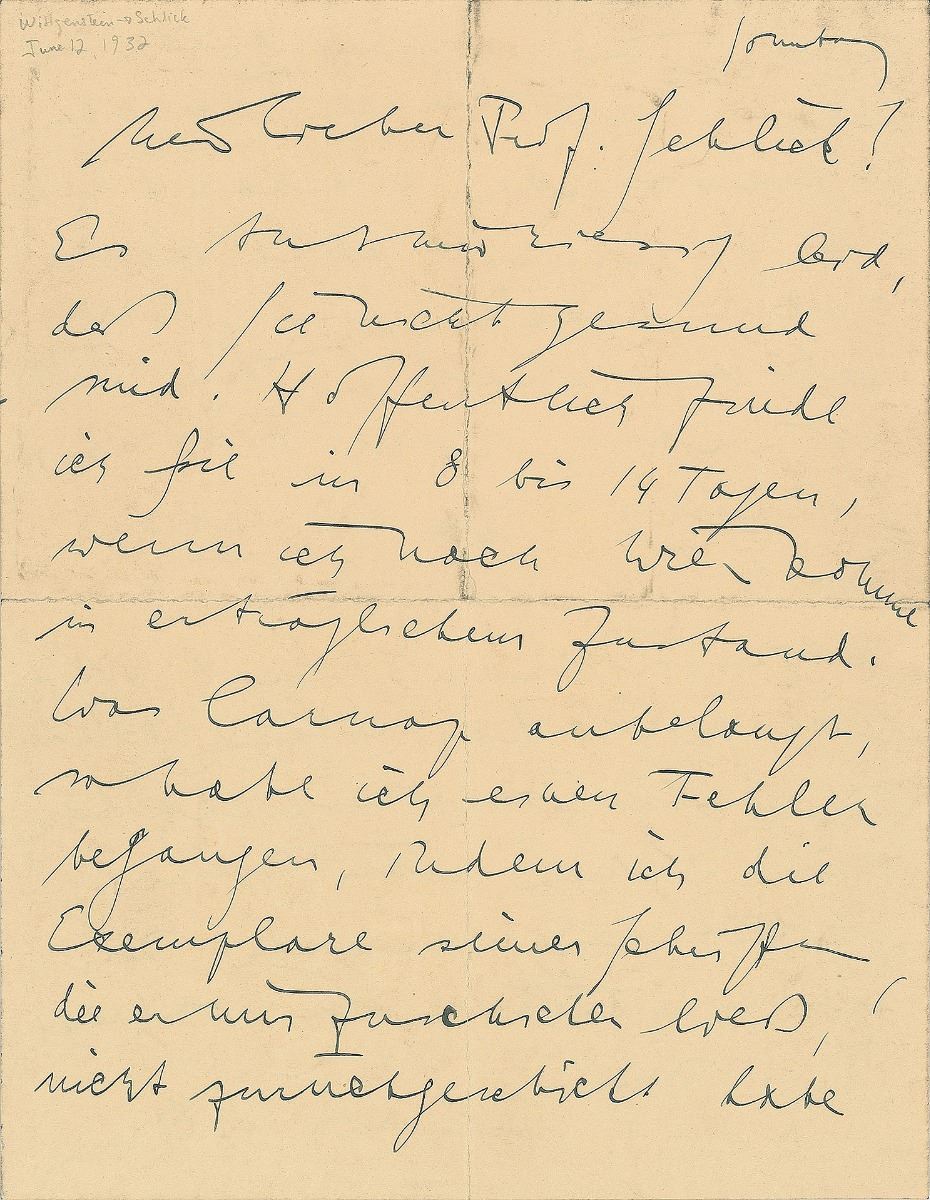 Wittgenstein → Schlick
June 12, 1932
Sonntag
Mein lieber Prof. Schlick!
Es tut mir leid,
daß Sie nicht gesund
sind. Hoffentlich finde
ich Sie in 8 bis 14 Tagen,
wenn ich nach Wien komme
in erträglichem Zustand.
Was Carnap anbelangt,
so habe ich einen Fehler
begangen, indem ich die
Exemplare seiner Schriften
die er mir zuschicken ließ,
nicht zurückgeschickt habe